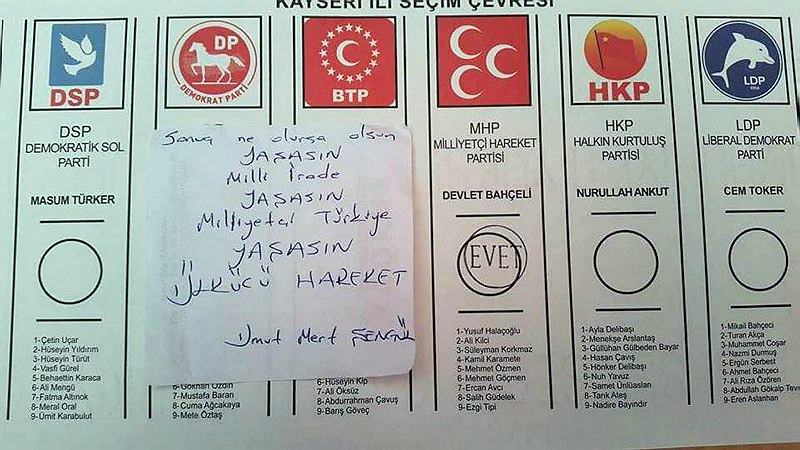 KAYSERİ İLİ SEÇİM ÇEVRESİ
DSP
DSP
DEMOKRATİK SOL
PARTİ
MASUM TÜRKER
1-Çetin Uçar
2-Hüseyin Yıldırım
3-Hüseyin Türüt
4-Vasfi Gürel
5-Behaettin Karaca
6-Ali Mengü
7-Fatma Altınok
8-Meral Oral
9-Ümit Karabulut
DP
DEMOKRAT PARTİ
Sonuç ne olursa olsun
YAŞASIN
Milli İrade
YAŞASIN
Milliyetçi Türkiye
YAŞASIN
ÜLKÜCÜ HAREKET
Umut Mert ŞENGÜL
6-Gökhan Özdin
7-Mustafa Baran
8-Cuma Ağcakaya
9-Mete Öztaş
BTP
6-Hüseyin Kip
7-Ali Öksüz
8-Abdurrahman Çavuş
9-Barış Göveç
MHP
MİLLİYETÇİ HAREKET
PARTİSİ
DEVLET BAHÇELİ
EVET
1-Yusuf Halaçoğlu
2-Ali Kilci
3-Süleyman Korkmaz
4-Kamil Karamete
5-Mehmet Özmen
6-Mehmet Göçmen
7-Ercan Avcı
8-Salih Güdelek
9-Ezgi Tipi
HKP
HKP
HALKIN KURTULUŞ
PARTİSİ
NURULLAH ANKUT
1-Ayla Delibaşı
2-Menekşe Arslantaş
3-Güllühan Gülbeden Bayar
4-Hasan Çavış
5-Hönker Delibaşı
6-Nuh Yavuz
7-Samet Ünlüaslan
8-Tarık Ateş
9-Nadire Bayındır
LDP
LDP
LİBERAL DEMOKRAT
PARTİ
CEM TOKER
1-Mikail Bahçeci
2-Turan Akça
3-Muhammet Coşar
4-Nazmi Durmuş
5-Ergün Serbest
6-Ahmet Bahçeci
7-Ali Rıza Özören
8-Abdullah Gökalp
9-Eren Aslanhan